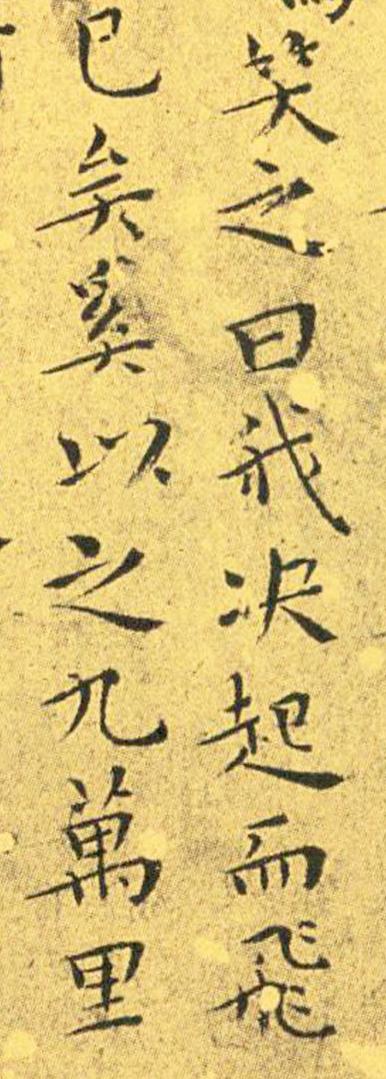 笑之曰我决起而飛
已矣奚以之九萬里